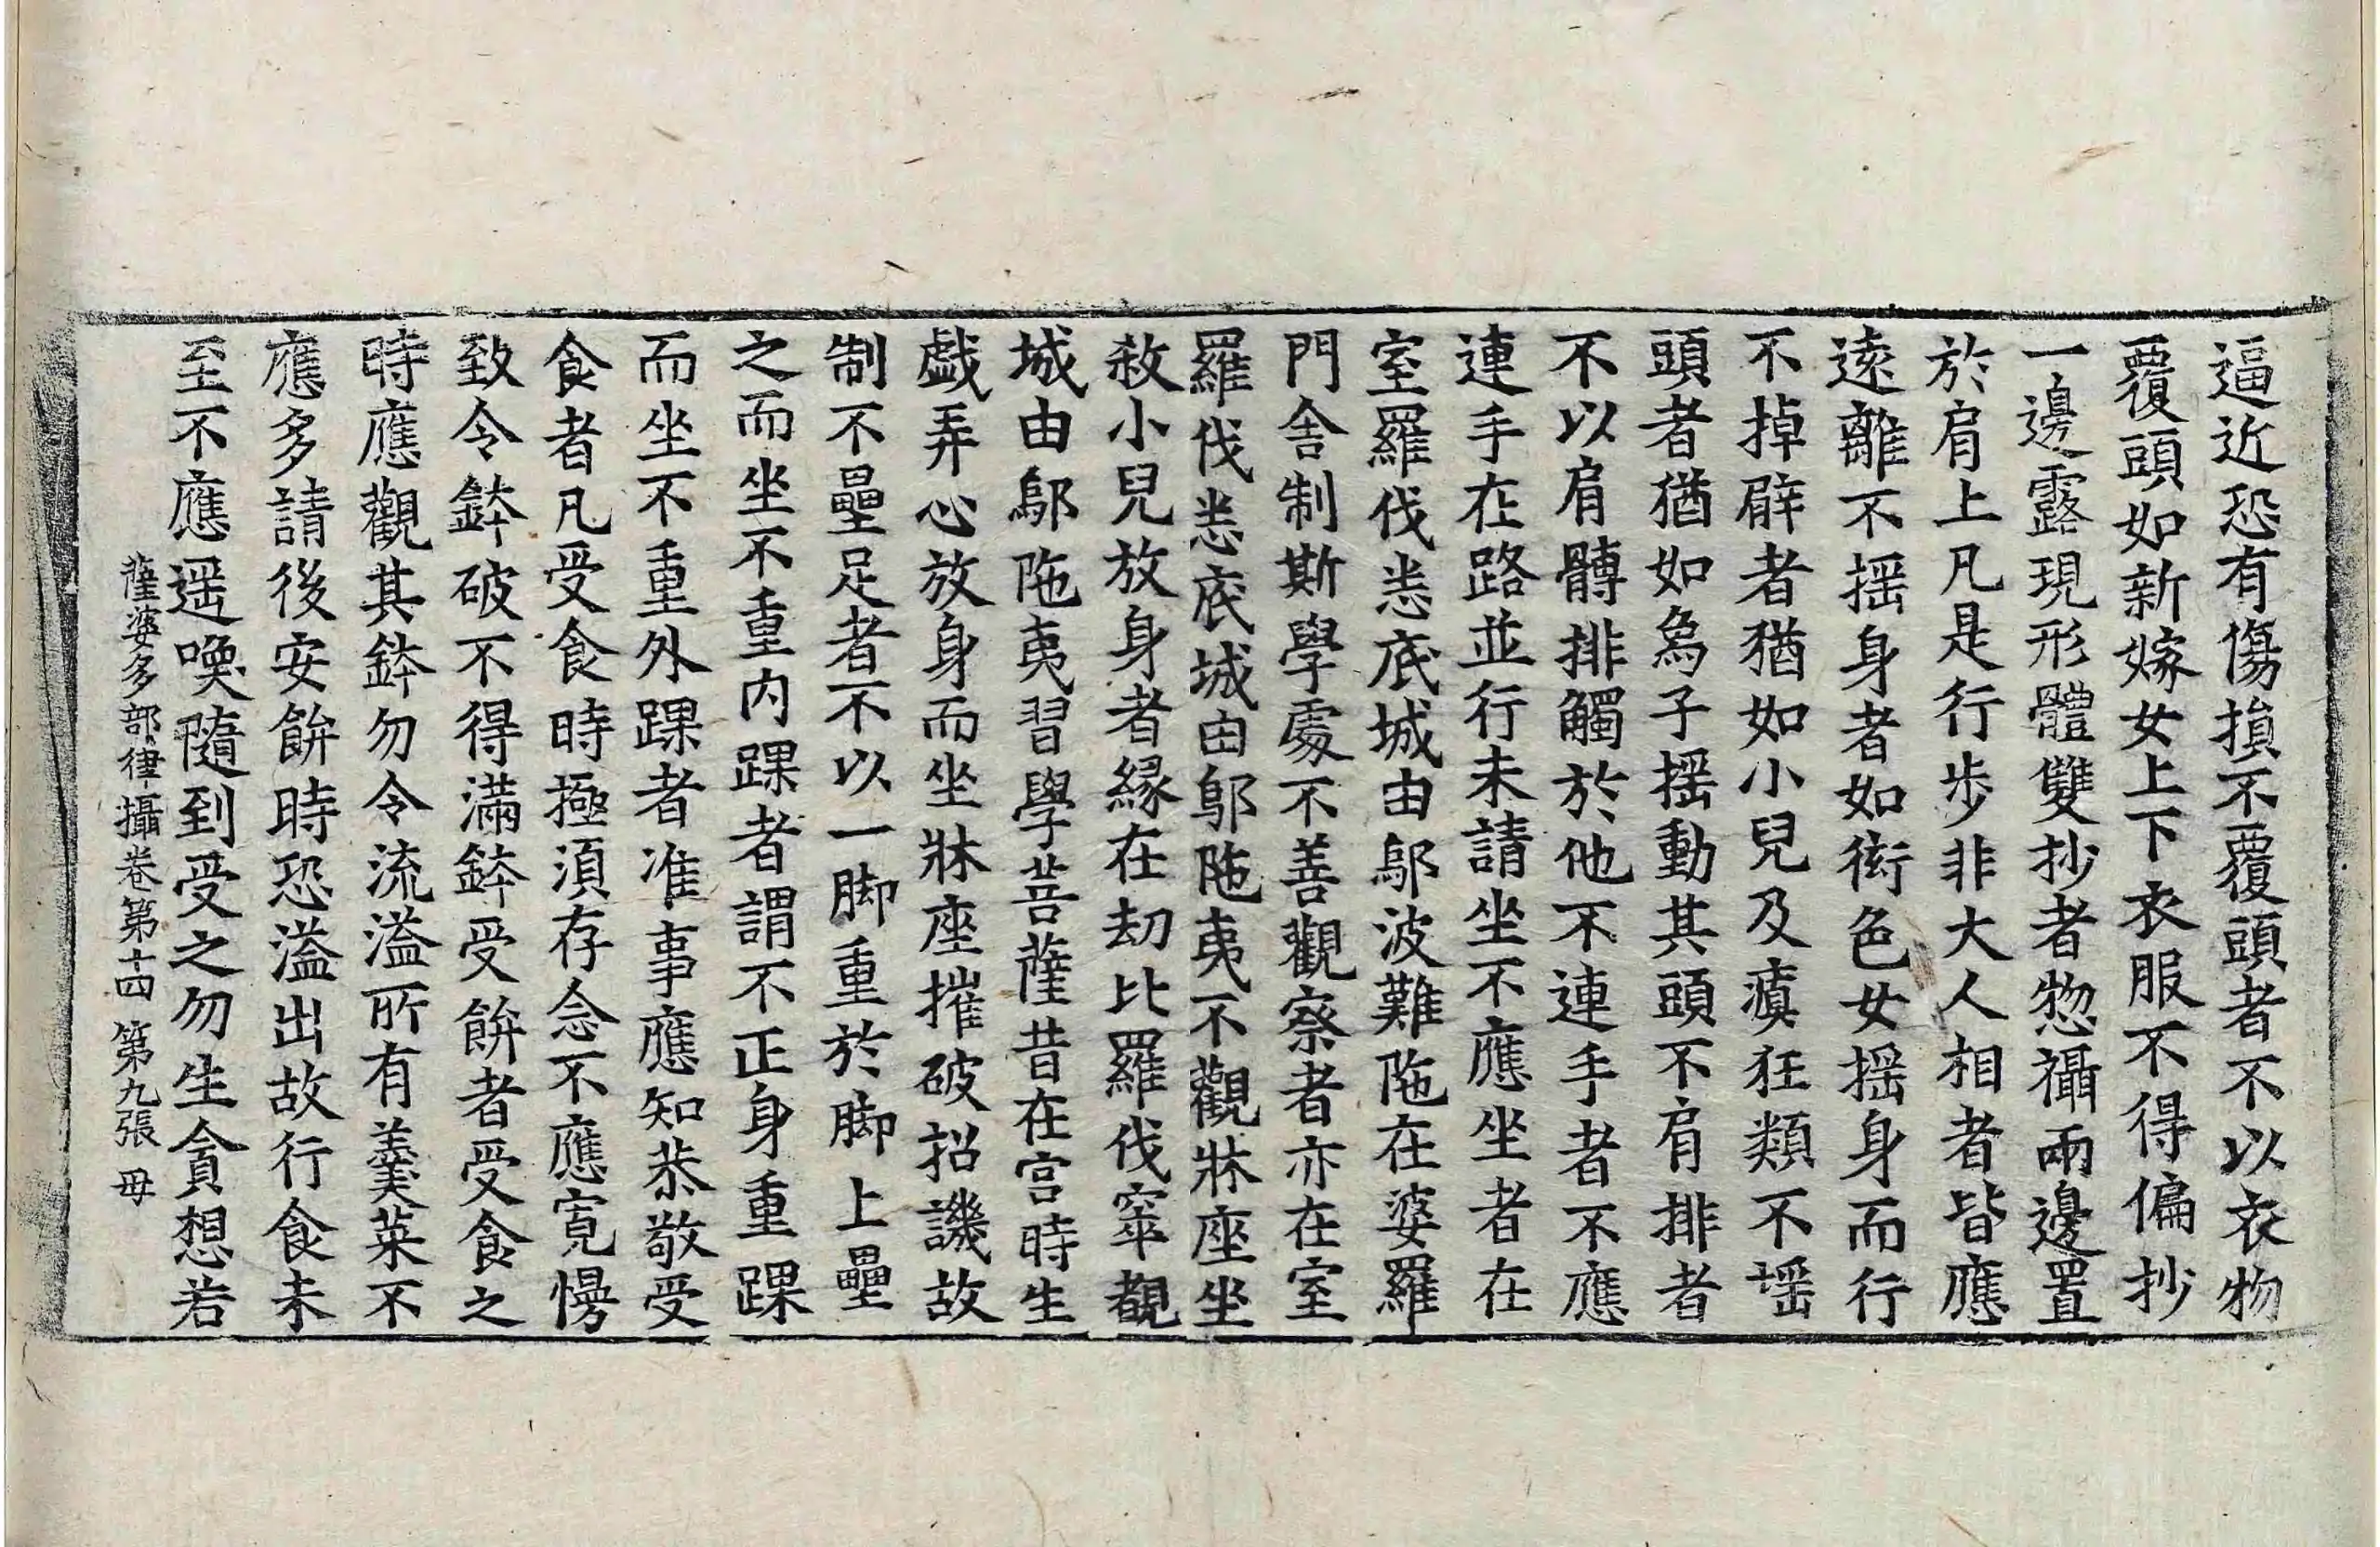 逼近恐有傷損不覆頭者不以衣物
覆頭如新嫁女上下衣服不得偏抄
一邊露現形體雙抄者惣攝兩邊置
於肩上凡是行步非大人相者皆應
遠離不揺身者如衒色女揺身而行
不掉臂者猶如小兒及瘨狂類不揺
頭者猶如為子揺動其頭不肩排者
不以肩髆排觸於他不連手者不應
連手在路並行未請坐不應坐者在
室羅伐悉底城由鄔波難陁在婆羅
門舍制斯學處不善觀察者亦在室
羅伐悉底城由鄔陁夷不觀牀座坐
敘小兒放身者緣在劫比羅伐窣覩
城由鄔陁夷習學菩薩昔在宮時生
戲弄心放身而坐牀座摧破招譏故
制不壘足者不以一脚重於脚上壘
之而坐不重內踝者謂不正身重踝
而坐不重外踝者准事應知恭敬受
食者凡受食時極湏存念不應寬慢
致令鉢破不得滿鉢受餅者受食之
時應觀其鉢勿令流溢所有羹菜不
應多請後安餅時恐溢出故行食未
至不應遥喚隨到受之勿生貪想若
薩婆多部律攝卷第十四 第九張 毋